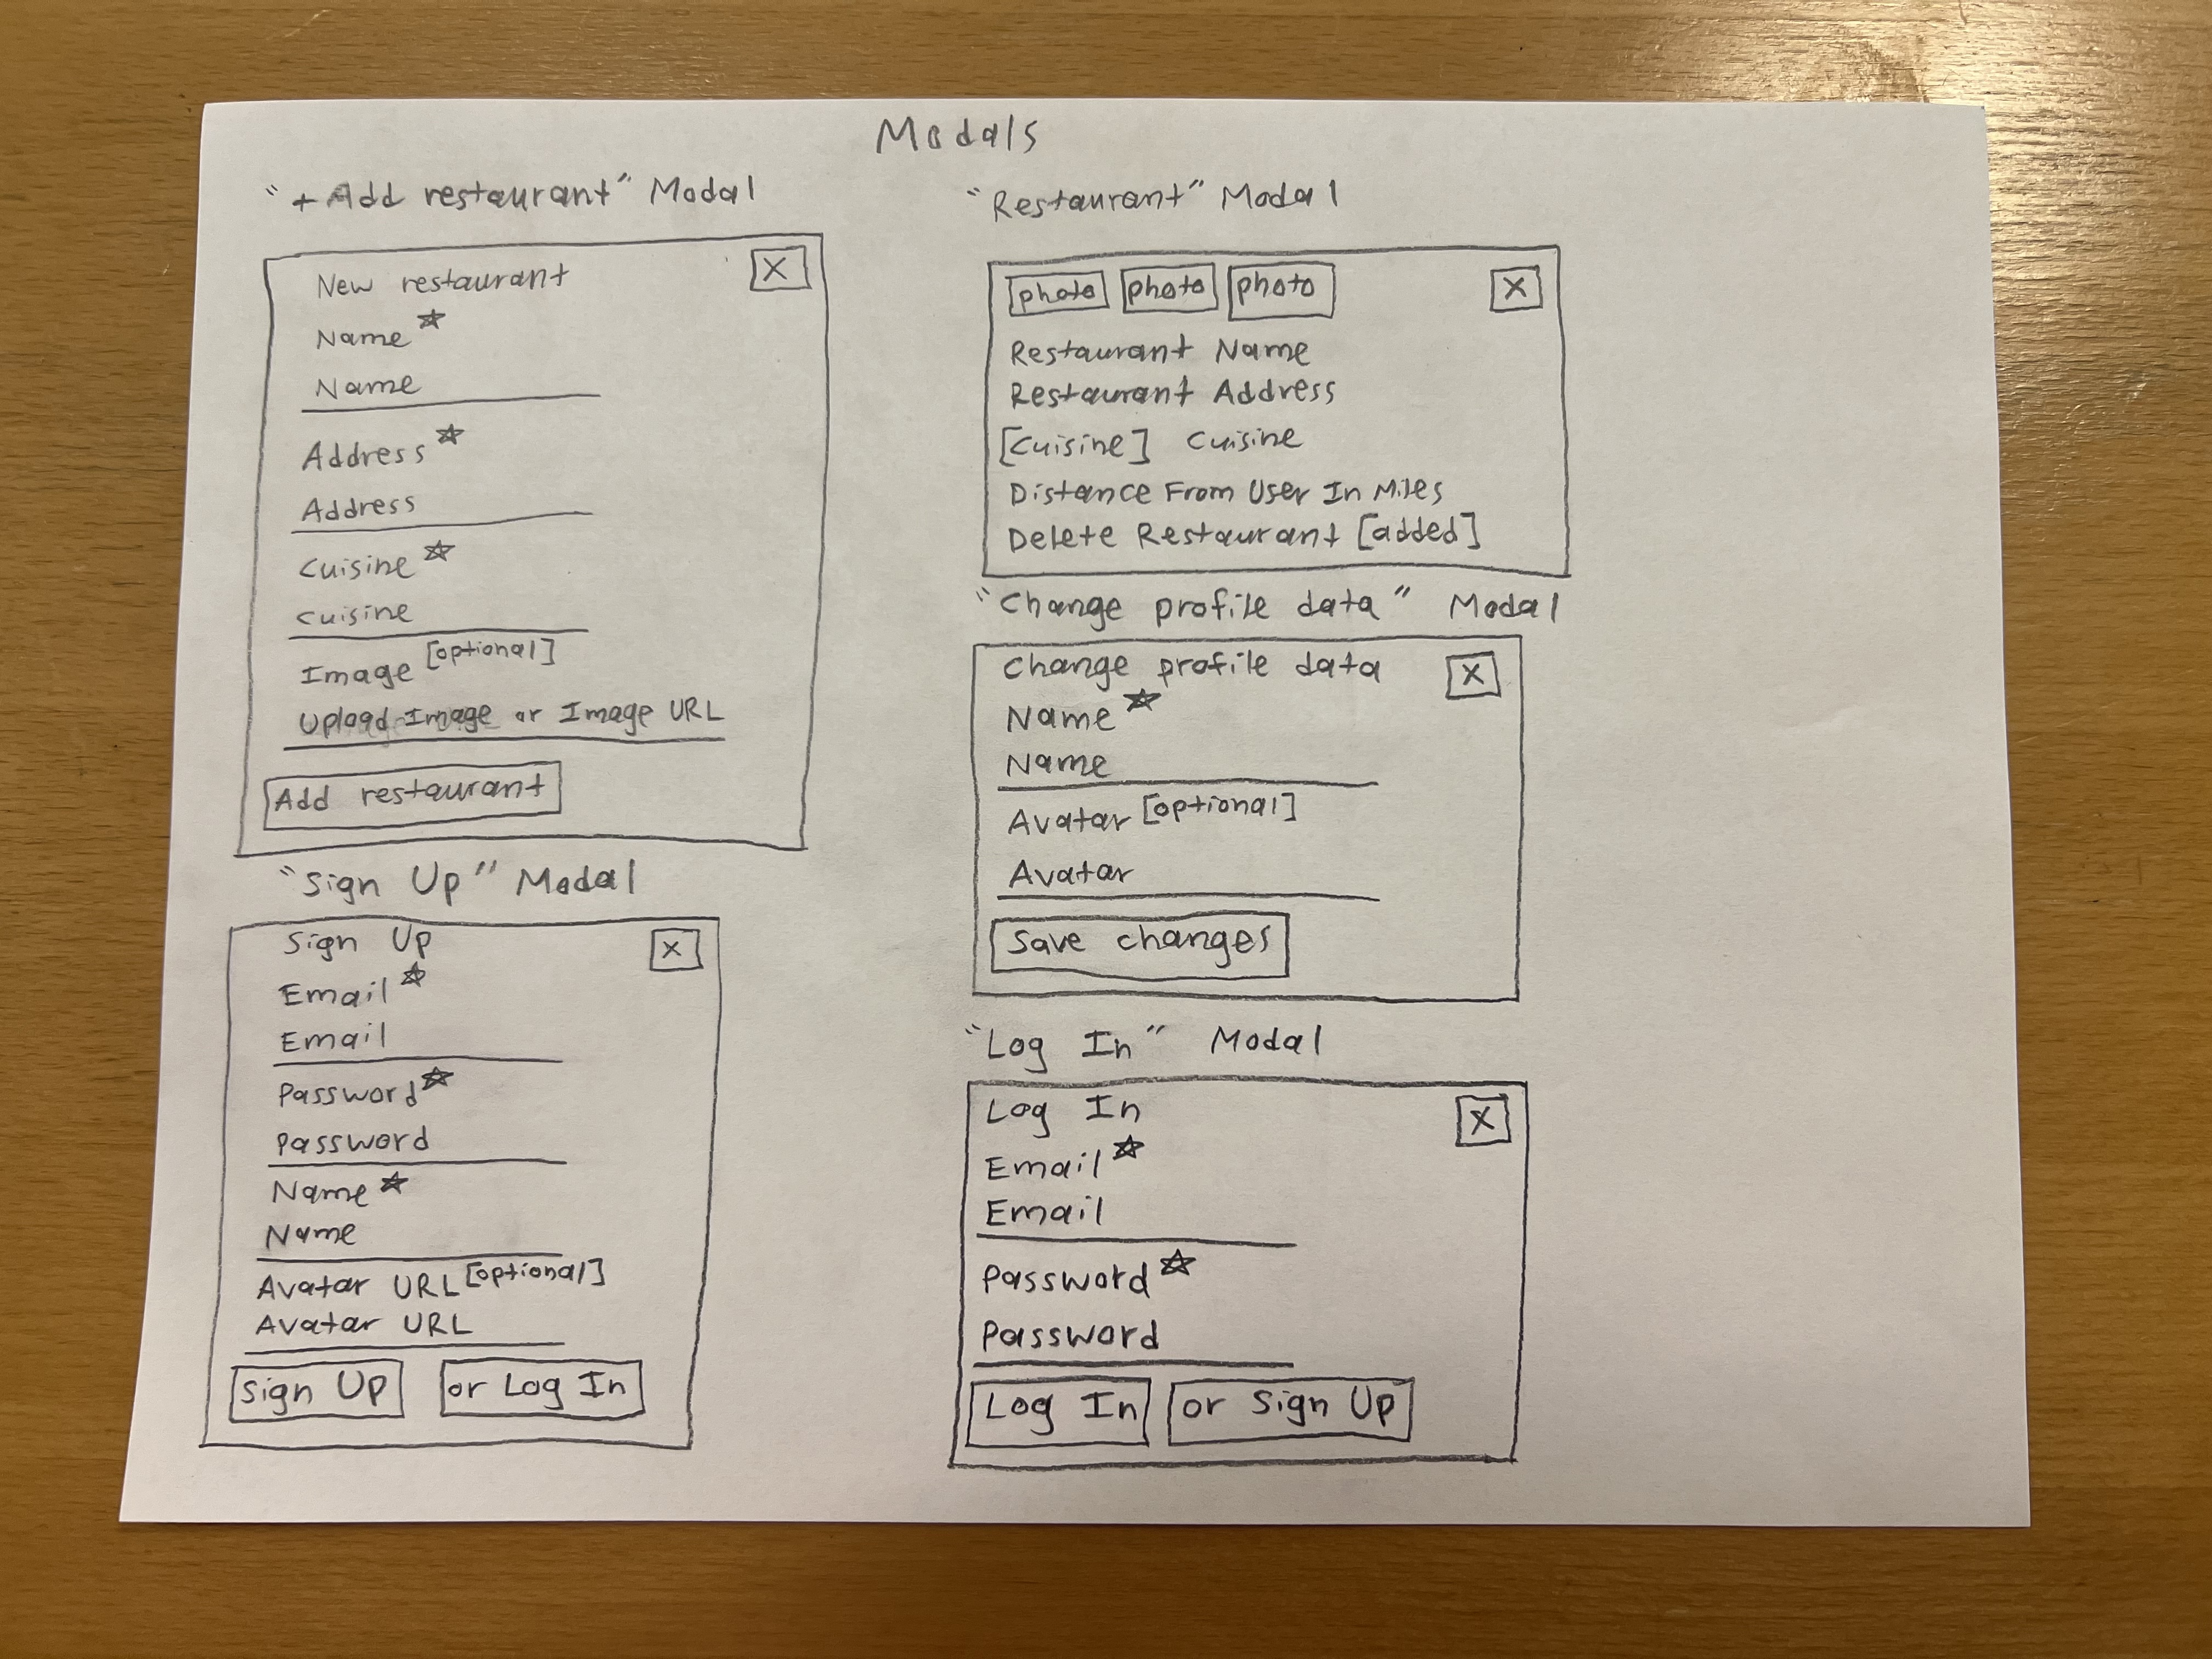 Modals
"+Add restaurant" Modal
New restaurant X
Name*
Name
Address*
Address
Cuisine*
Cuisine
Image [optional]
Upload Image or Image URL
Add restaurant
"Sign Up" Modal
Sign Up X
Email*
Email
Password*
Password
Name*
Name
Avatar URL [optional]
Avatar URL
Sign Up or Log In
"Restaurant" Modal
photo photo photo X
Restaurant Name
Restaurant Address
[Cuisine] Cuisine
Distance From User In Miles
Delete Restaurant [added]
"Change profile data" Modal
Change profile data X
Name*
Name
Avatar [optional]
Avatar
Save changes
"Log In" Modal
Log In X
Email*
Email
Password*
Password
Log In or Sign Up